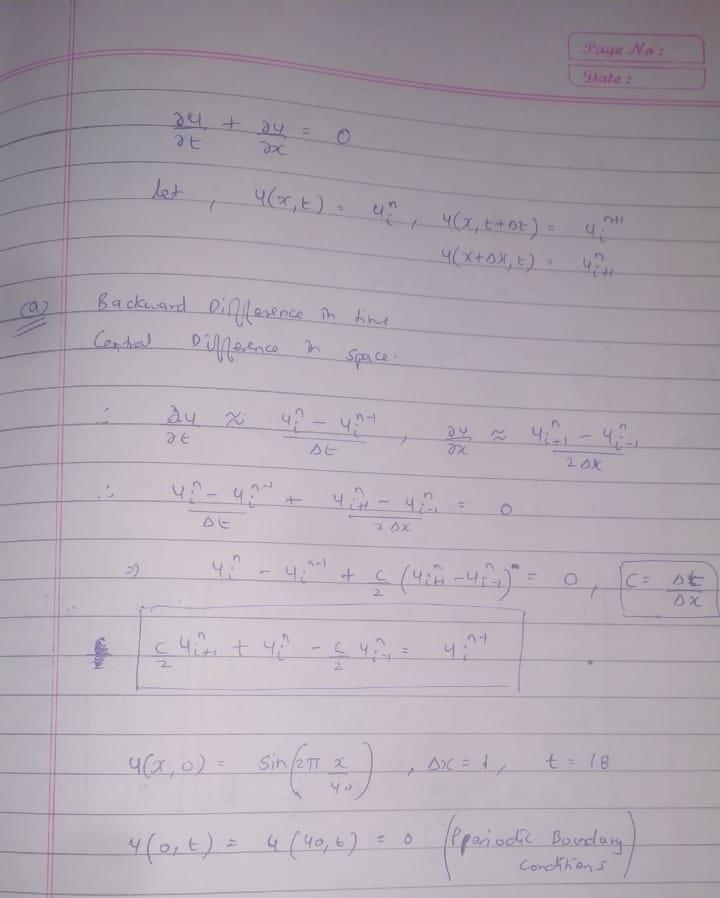 Page No:
Date:
∂u/∂t + ∂u/∂x = 0
let, u(x,t) = u_i^n, u(x,t+Δt) = u_i^{n+1}
u(x+Δx,t) = u_{i+1}^n
(a) Backward Difference in time
Central Difference in space.
∴ ∂u/∂t ≈ (u_i^n - u_i^{n-1})/Δt, ∂u/∂x ≈ (u_{i+1}^n - u_{i-1}^n)/(2Δx)
∴ (u_i^n - u_i^{n-1})/Δt + (u_{i+1}^n - u_{i-1}^n)/(2Δx) = 0
⇒ u_i^n - u_i^{n-1} + c/2 (u_{i+1}^n - u_{i-1}^n) = 0, C = Δt/Δx
c/2 u_{i+1}^n + u_i^n - c/2 u_{i-1}^n = u_i^{n-1}
u(x,0) = Sin(2π x/40), Δx = 1, t = 18
u(0,t) = u(40,t) = 0 (Pperiodic Boundary
Conditions)